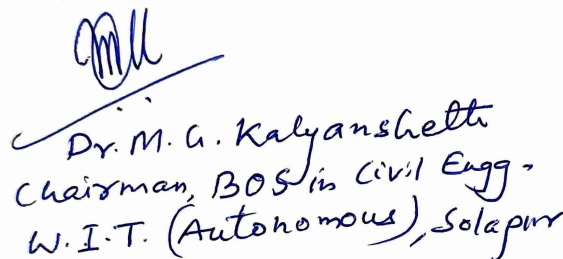 Dr. M. G. Kalyanshetti
Chairman, BOS in Civil Engg.
W.I.T. (Autonomous), Solapur